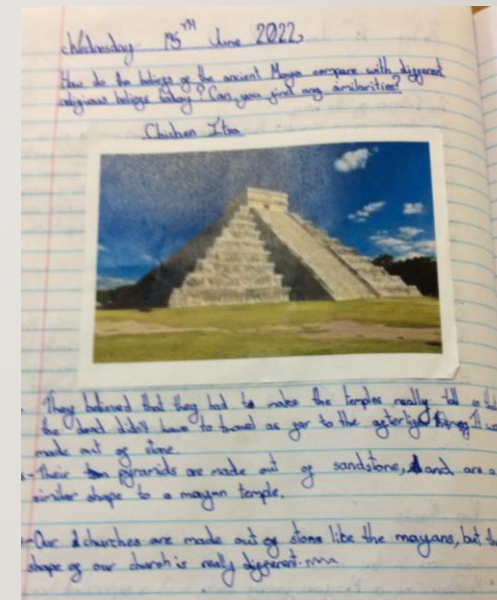 Wednesday 15TH June 2022
How do the beliefs of the ancient Maya compare with different
religious beliefs today? Can you find any similarities?
Chichen Itza
They believed that they had to make the temples really tall so
the dead didn't have to travel as far to the It
made out of stone.
Their pyramids are made out of sandstone, and are a
similar shape to a mayan temple.
-Our churches are made out of stone like the mayans, but
shape of our church is really different.